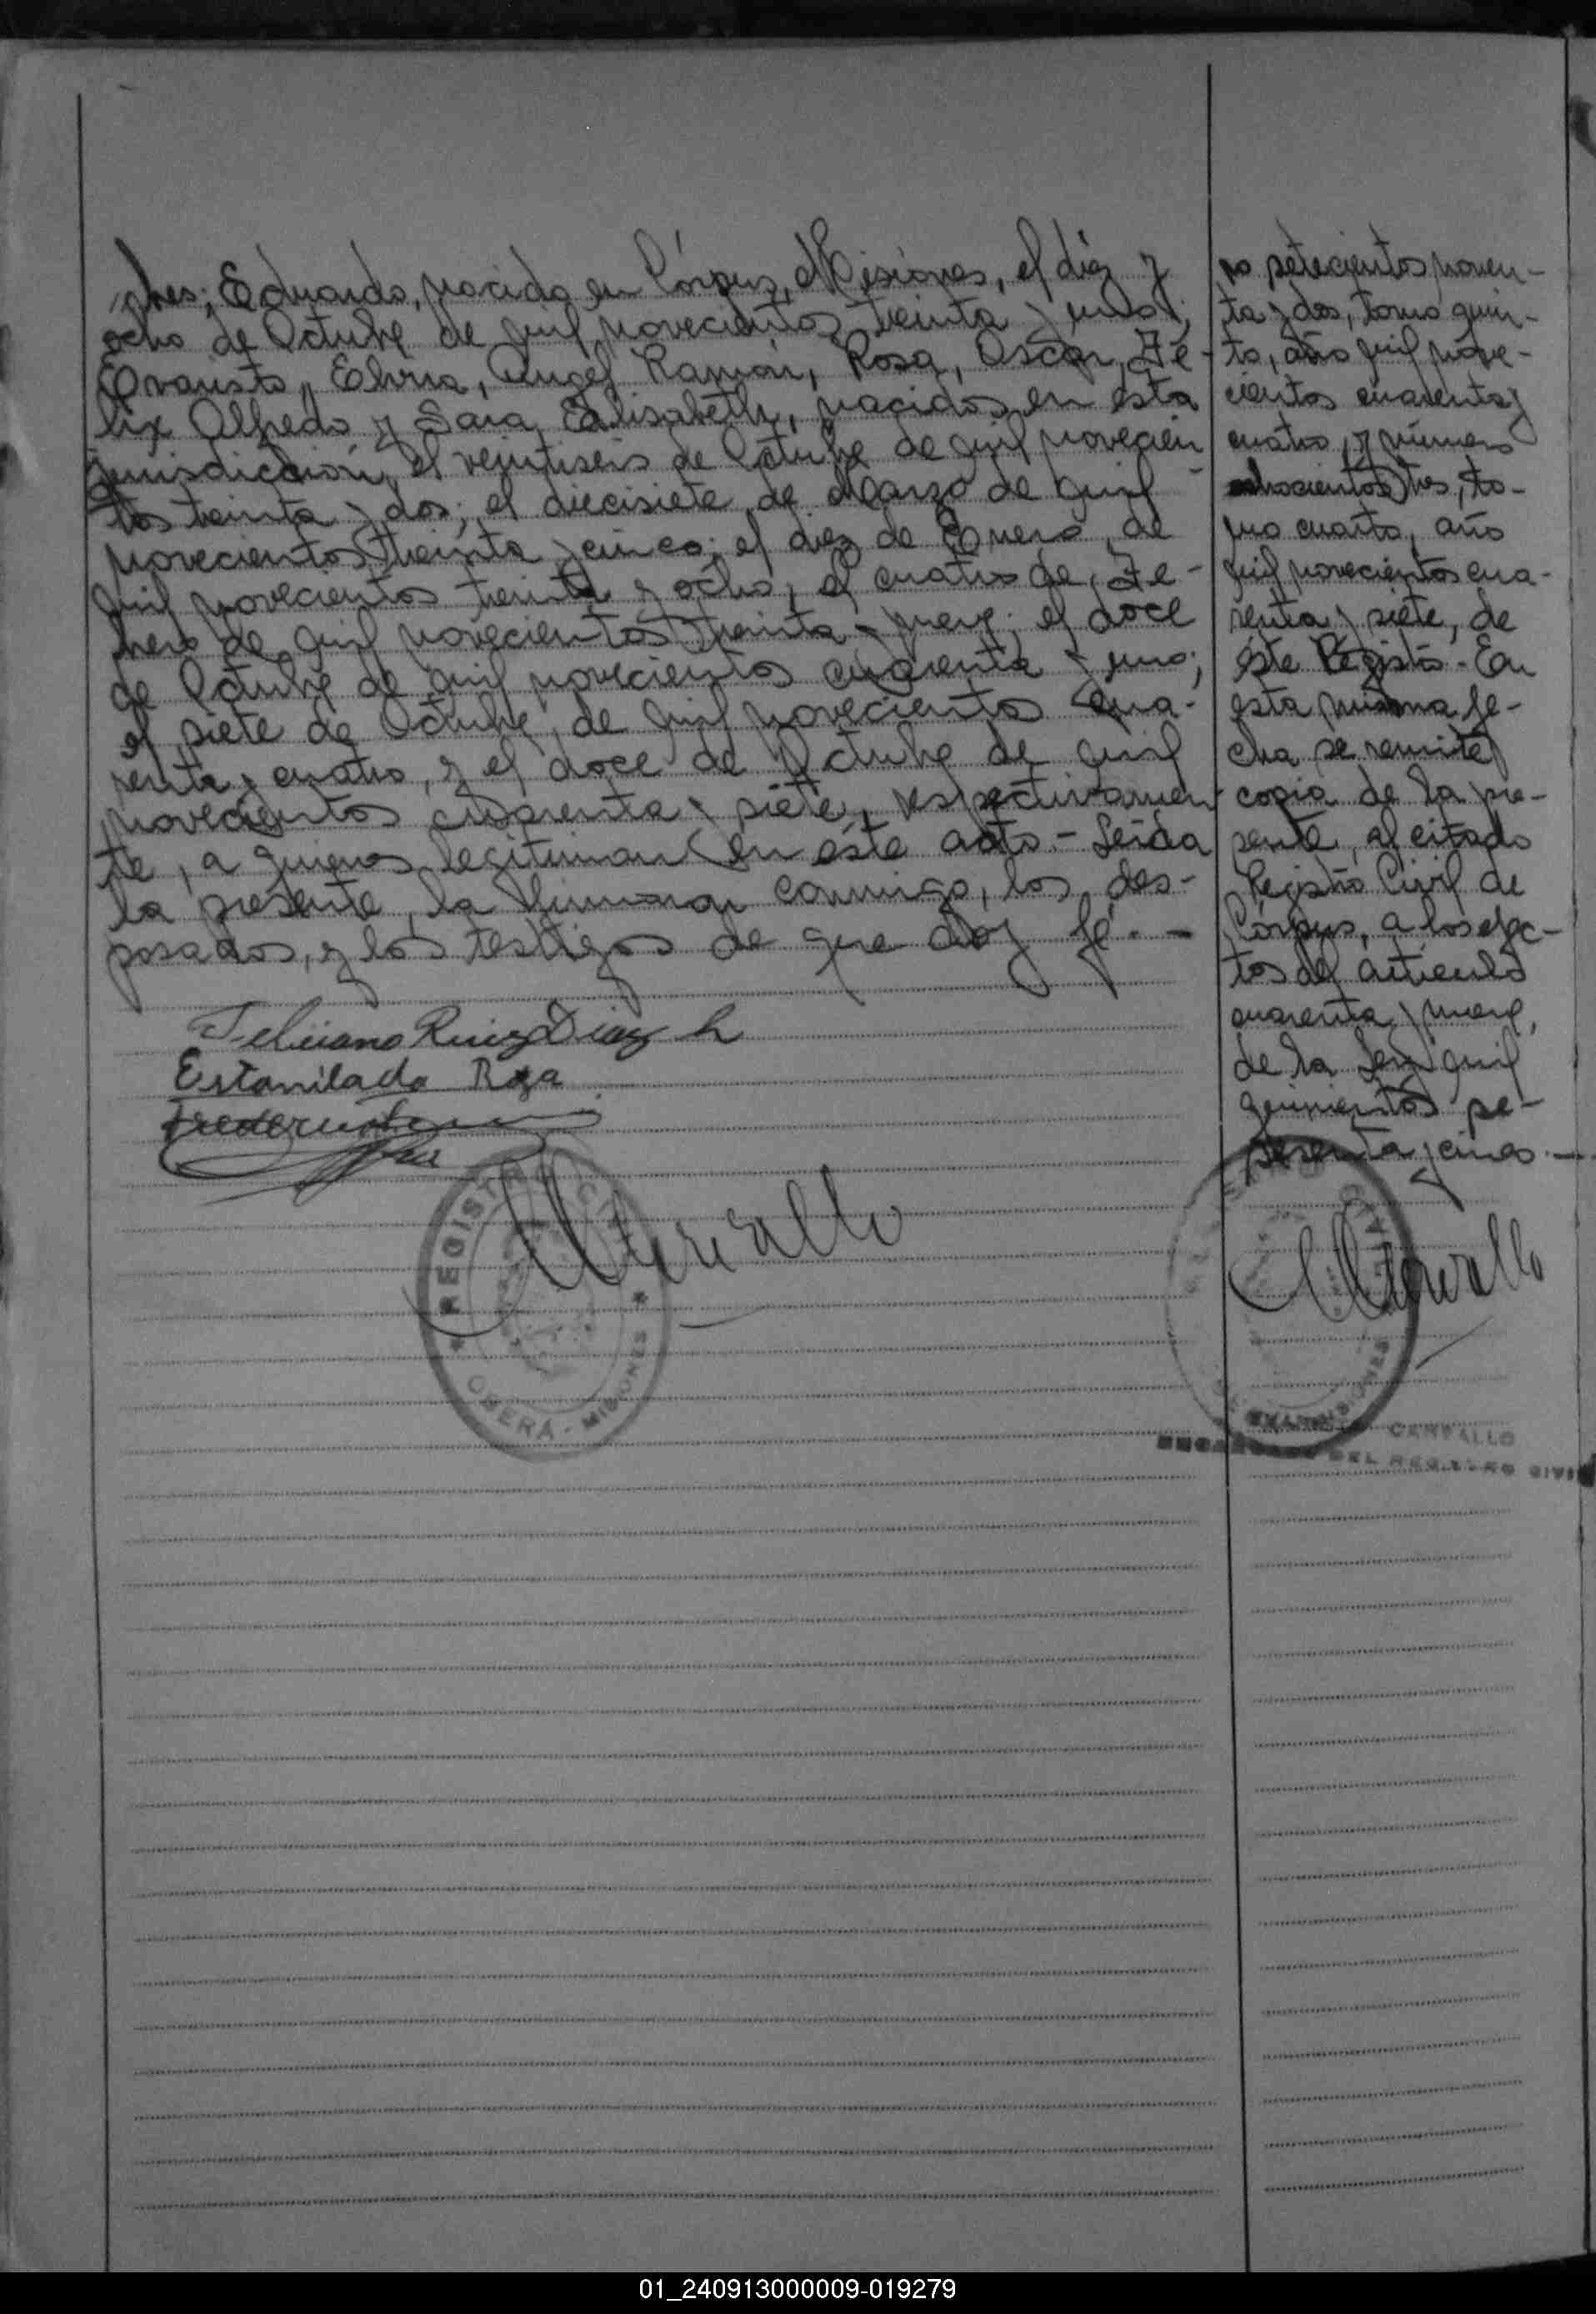 bres; Eduardo, nacido en Córpus, Misiones, el diez y
ocho de Octubre de mil novecientos treinta y uno;
Evaristo, Elvira, Angel Ramón, Rosa, Oscar, Fé-
lix Alfredo y Sara Elisabeth, nacidos en ésta
jurisdicción, el veintiseis de Octubre de mil novecien
tos treinta y dos; el diecisiete de Marzo de mil
novecientos treinta y cinco; el diez de Enero de
mil novecientos treinta y ocho; el cuatro de Fe-
brero de mil novecientos treinta y nueve; el doce
de Octubre de mil novecientos cuarenta y uno;
el siete de Octubre de mil novecientos cua-
renta y cuatro, y el doce de Octubre de mil
novecientos cuarenta y siete, respectivamen
te, a quienes legitiman en éste acto.- Leída
la presente, la firmaron conmigo, los des-
posados, y los testigos de que doy fé.-
Feliciano Ruiz Diaz h
Estanilado Roza
Carvallo
REGISTRO CIVIL
OBERÁ - MISIONES
ro setecientos noven-
ta y dos, tomo quin-
to, año mil nove-
cientos cuarenta y
cuatro, y número
ochocientos tres, to-
mo cuarto, año
mil novecientos cua-
renta y siete, de
éste Registro.- En
esta misma fe-
cha se remite
copia de la pre-
sente, al citado
Registro Civil de
Córpus, a los efec-
tos del artículo
cuarenta y nueve,
de la Ley mil
quinientos se-
senta y cinco.-
Carvallo
CARVALLO
ENCARGADO DEL REGISTRO CIVIL
01_240913000009-019279